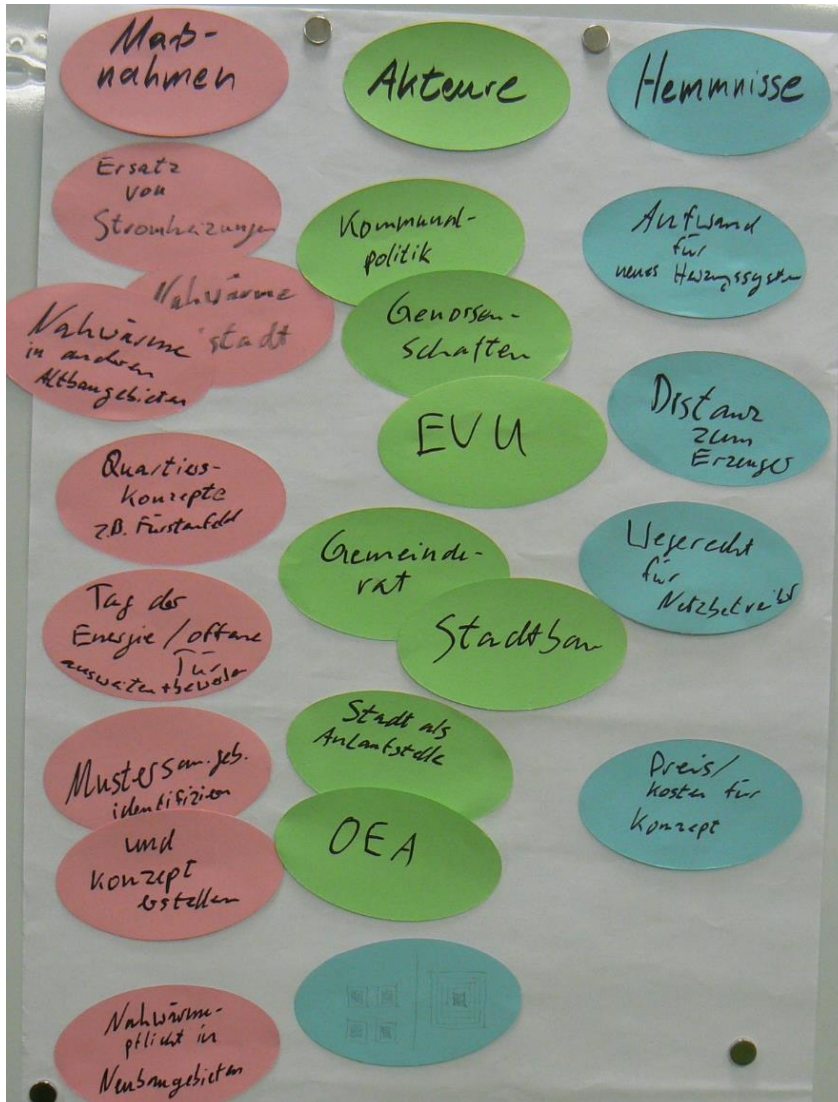 Maß-
nahmen
Ersatz
von
Stromheizungen
Nahwärme
stadt
Nahwärme
in anderen
Altbaugebieten
Quartiers-
konzepte
z.B. Fürstenfeld
Tag der
Energie/offene
Tür
ausweiten + bewerben
Mustersan.geb.
identifizieren
und
Konzept
erstellen
Nahwärme-
pflicht in
Neubaugebieten
Akteure
Kommunal-
politik
Genossen-
schaften
EVU
Gemeinde-
rat
Stadtbau
Stadt als
Anlaufstelle
OEA
Hemmnisse
Aufwand
für
neues Heizungssystem
Distanz
zum
Erzeuger
Wegerecht
für
Netzbetreiber
Preis/
Kosten für
Konzept